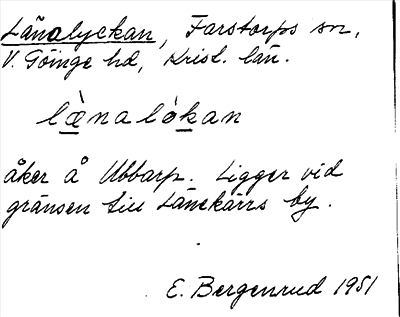 Länalyckan, Farstorps sn,
V. Göinge hd, Krist. län.
læ̀nalókan
åker å Ubbarp. Ligger vid
gränsen till Länekärrs by.
E. Bergenrud 1951